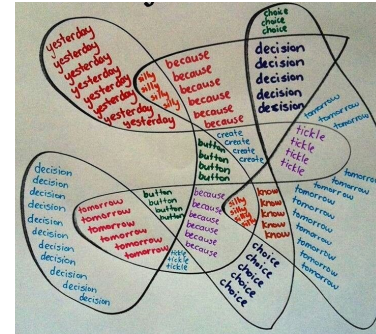 yesterday
yesterday
yesterday
yesterday
yesterday
yesterday
yesterday
yesterday
silly
silly
silly
silly
because
because
because
because
because
because
choice
choice
choice
decision
decision
decision
decision
decision
tomorrow
tomorrow
tomorrow
create
create
create
button
button
button
button
tickle
tickle
tickle
tickle
decision
decision
decision
decision
decision
decision
decision
decision
decision
decision
decision
tomorrow
tomorrow
tomorrow
tomorrow
tomorrow
button
button
button
button
tickle
tickle
tickle
because
because
because
because
because
because
silly
silly
silly
silly
know
know
know
know
know
choice
choice
choice
choice
choice
tomorrow
tomorrow
tomorrow
tomorrow
tomorrow
tomorrow
tomorrow
tomorrow
tomorrow
tomorrow